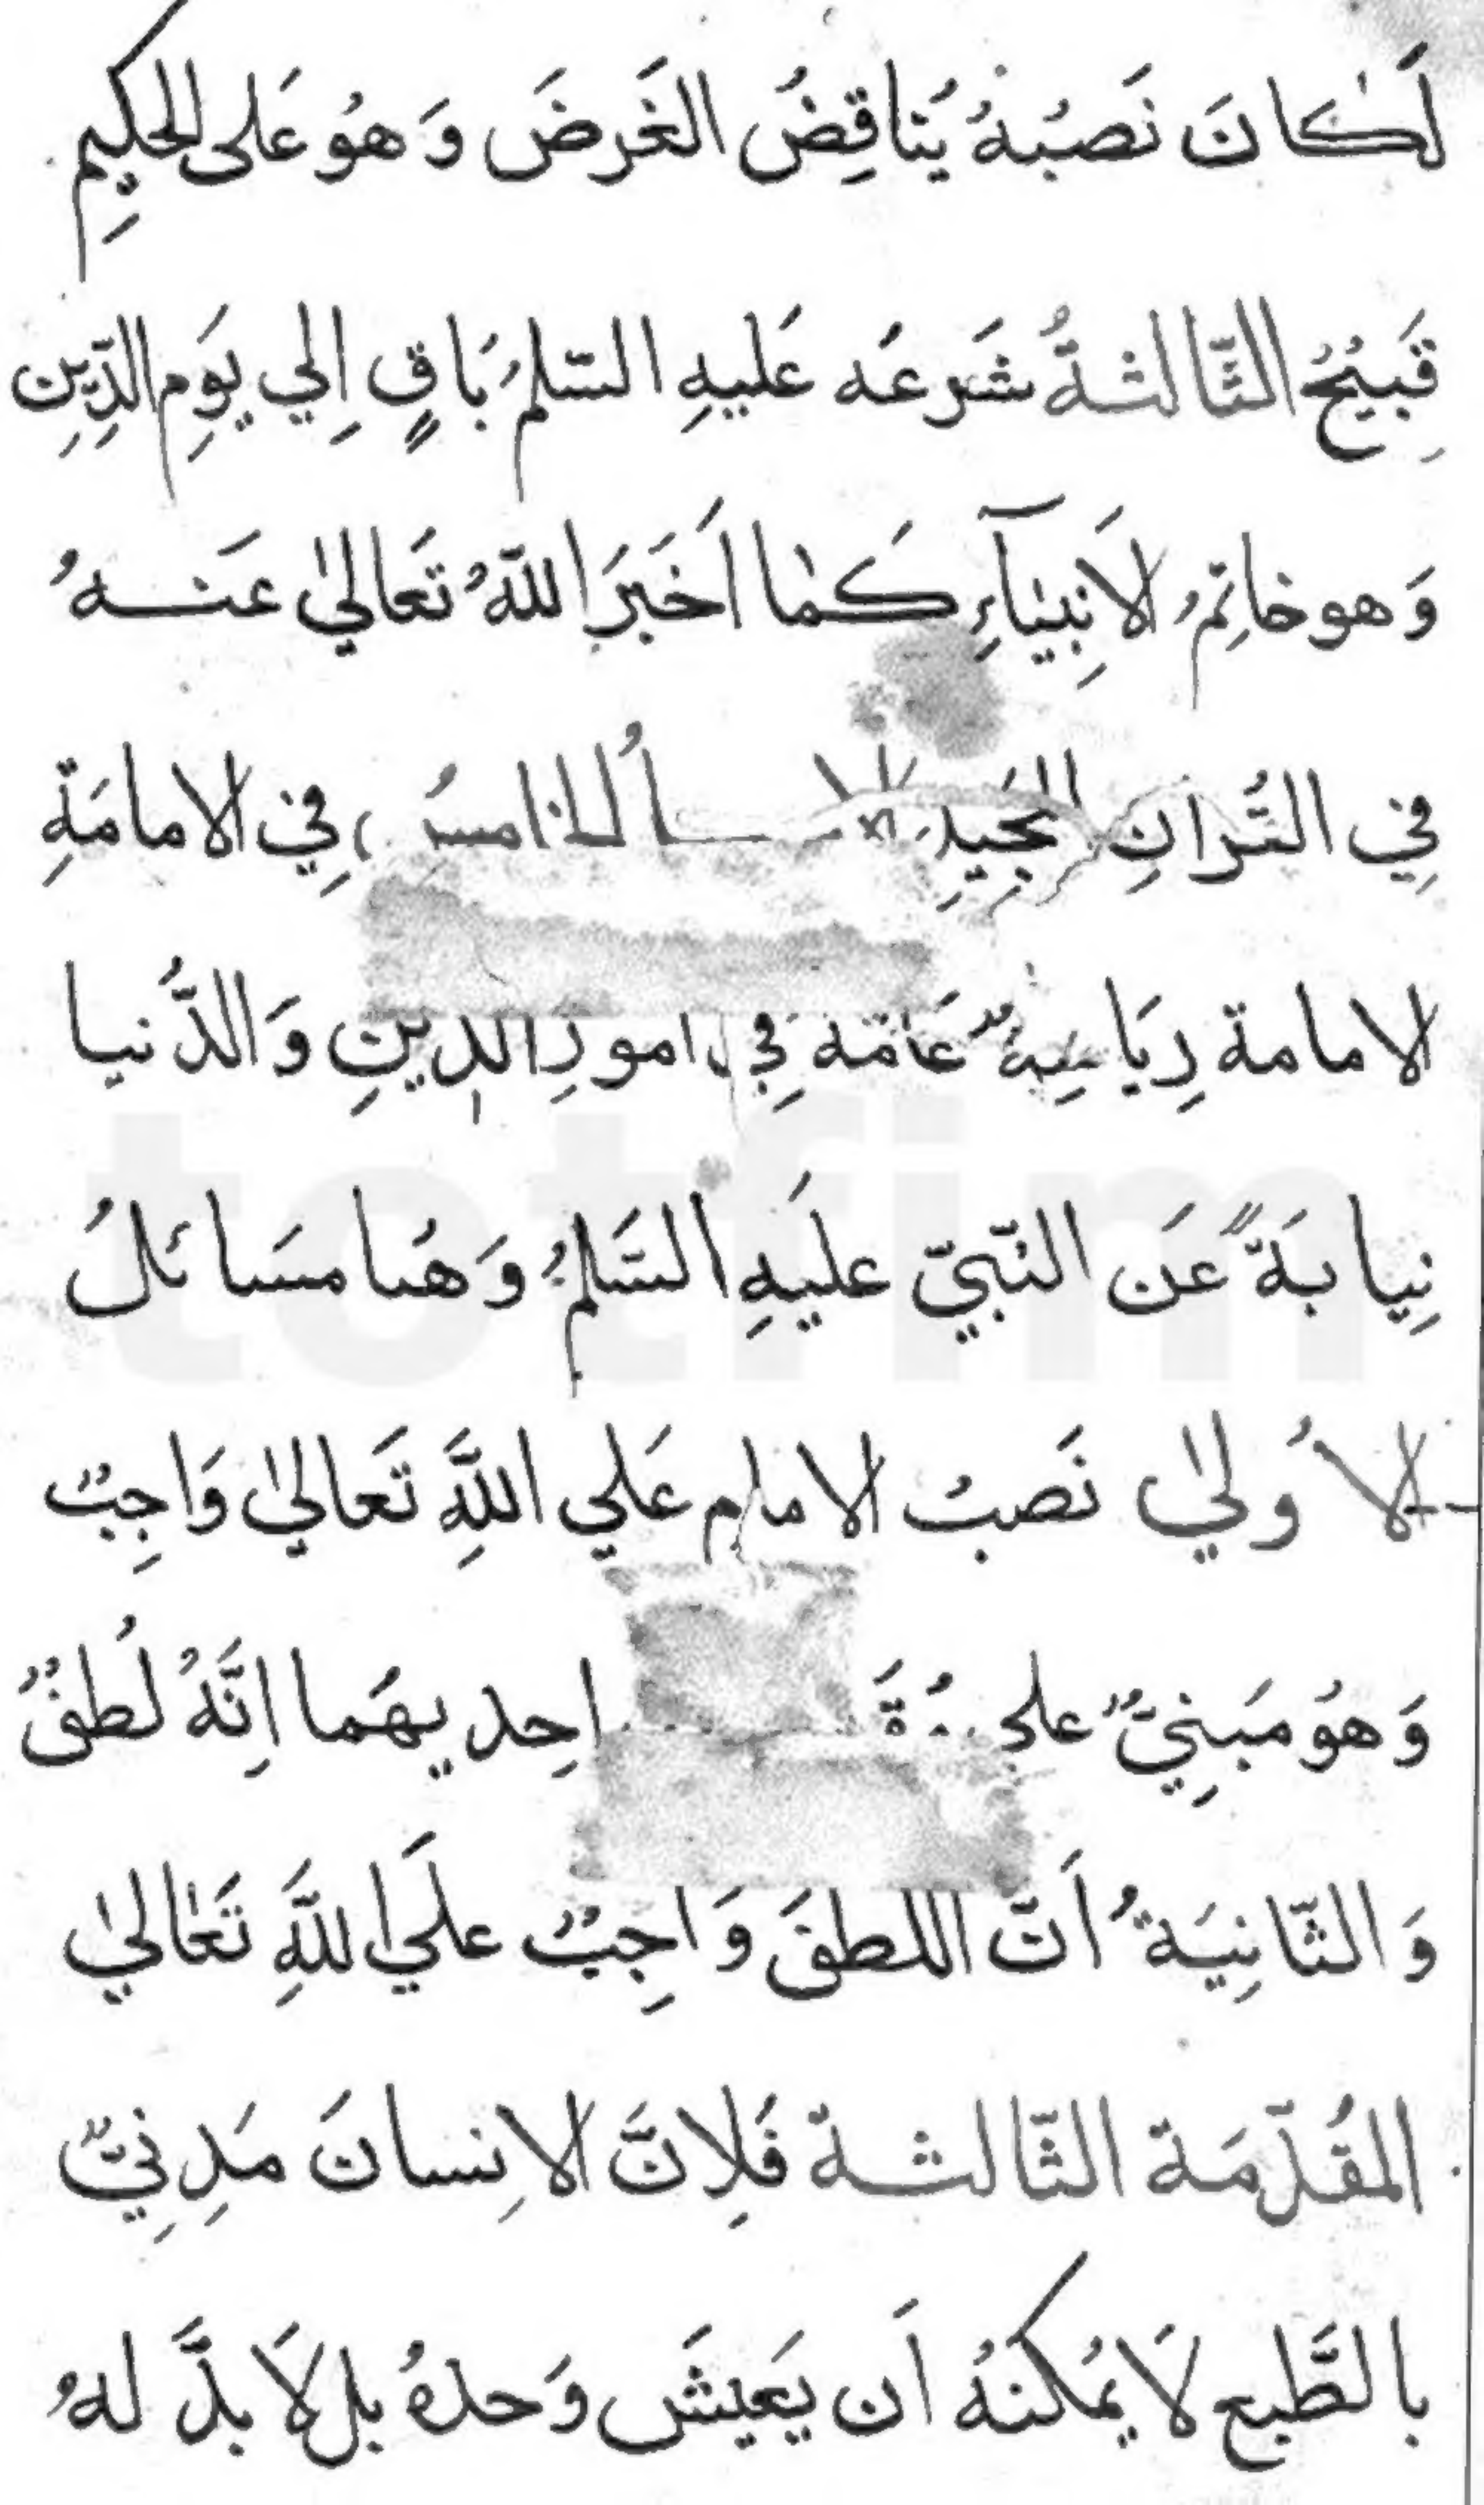 لَكانَ نَصبُهُ يُناقِضُ الغَرضَ وَهُو عَلى الحكيمِ
قَبِيْحُ الثَّالثةُ شَرعَه عَليهِ السّلمُ بَاقٍ اِلي يَومِ الدِّينِ
وَهو خاتِمُ الاَنبِيٰآءِ كَمٰا اَخَبَرَ اللّهُ تَعاليٰ عَنهُ
فِي القُرانِ المَجَيدِ الخامسُ فِي الامامَةِ
الامامة رِيَاسِةٌ عَامّة فِي امورِ الدِينِ وَالدُّنيا
نِيابَةً عَن النّبيّ عليَهِ السَّلمُ وَهُنا مسَائلُ
الاُوليٰ نَصبُ الامام عَلي اللَّهِ تَعاليٰ وَاجِبٌ
وَهوُ مَبنِيٌّ علي احِديهَما اِنَّهُ لُطفٌ
وَالثّانِيَةُ اَنّ اللطفَ وَاجِبٌ علَي اللَّهِ تَعٰاليٰ
المقُدّمَة الثّالثة فَلِانَّ الاِنسانَ مَدِنِيٌّ
بالطَّبع لاَيمُكنهُ اَن يَعيشَ وَحدهُ بل لاَ بدَّ لهُ
totfim